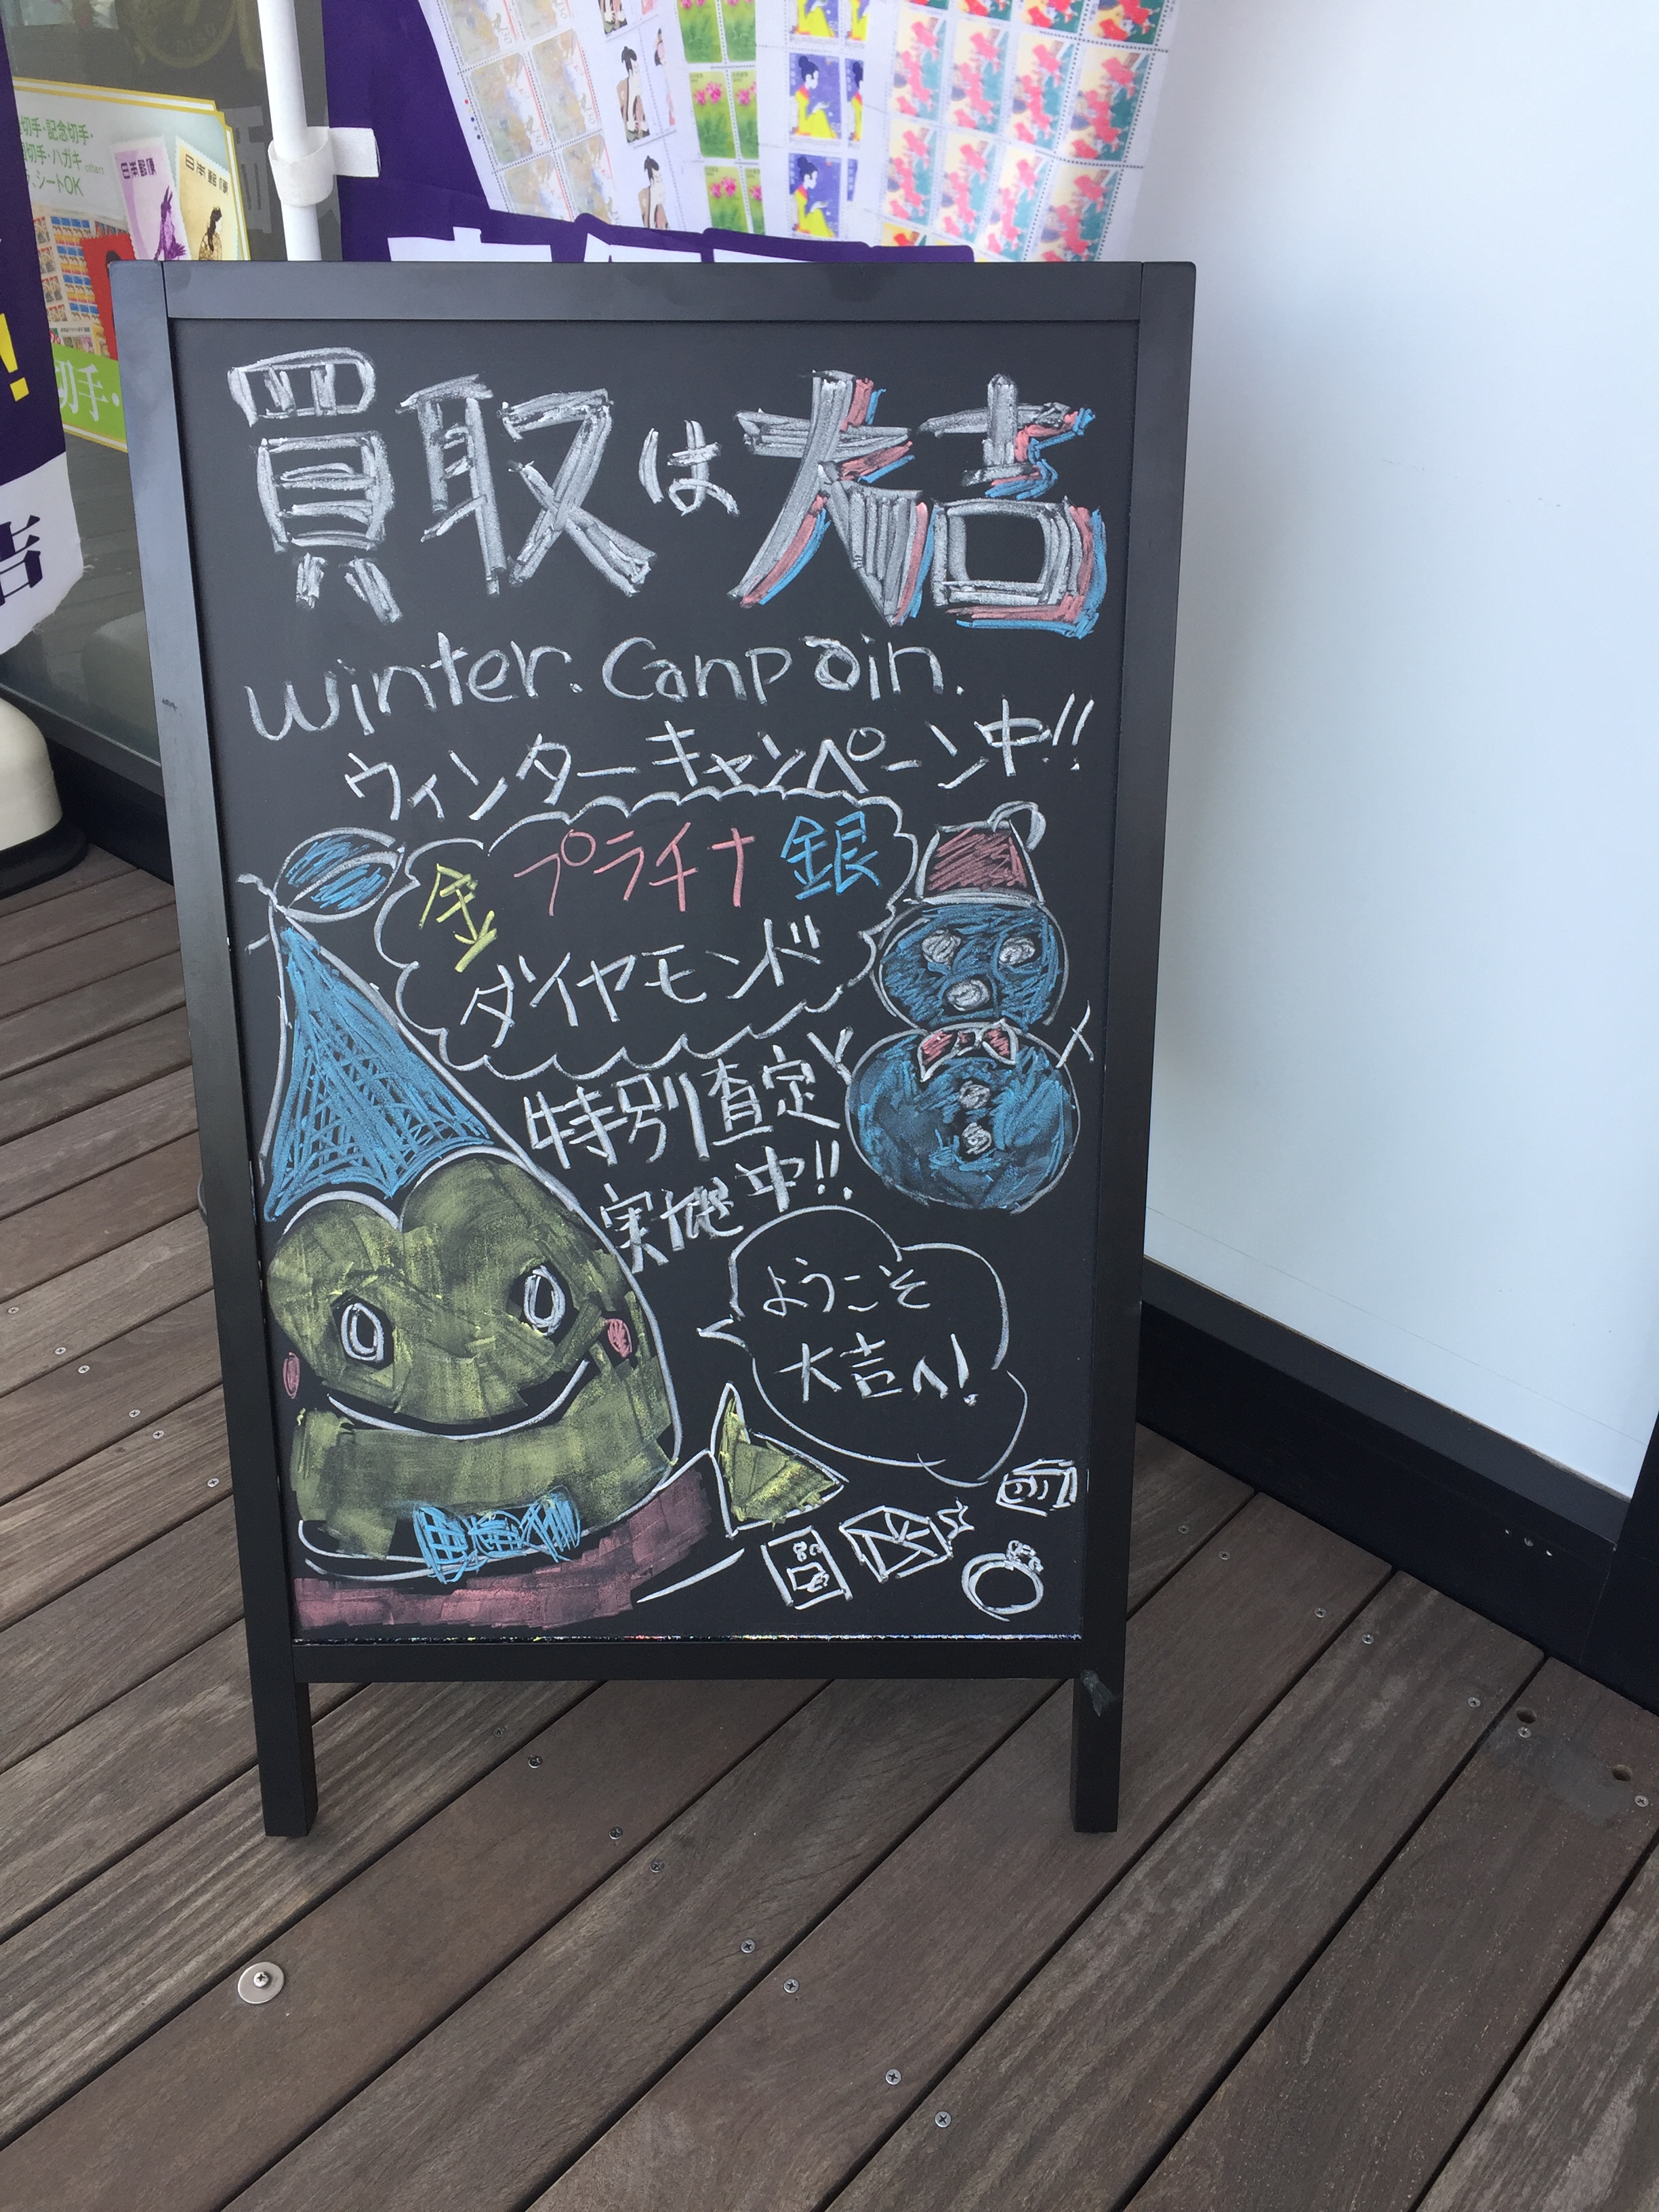 切手・記念切手・
切手・ハガキ
シートOK
日本郵便
日本郵便
切手・
!
吉
買取は大吉
Winter. Canpain.
ウィンターキャンペーン中!!
金 プラチナ 銀
ダイヤモンド
特別査定
実施中!!
ようこそ
大吉へ!